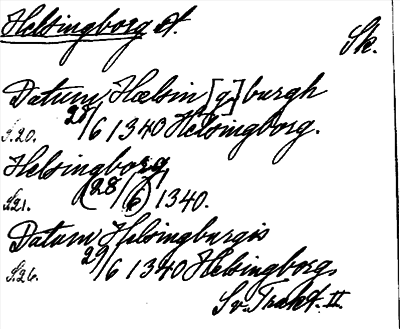 Helsingborg st.
Sk.
Datum Hælsin[g]burgh
S.20. 28/6 1340 Helsingborg.
Helsingborg
S.21. (28/6) 1340.
Datum Helsingburgis
S.26. 29/6 1340 Helsingborg,
Sv. Trakt. II.